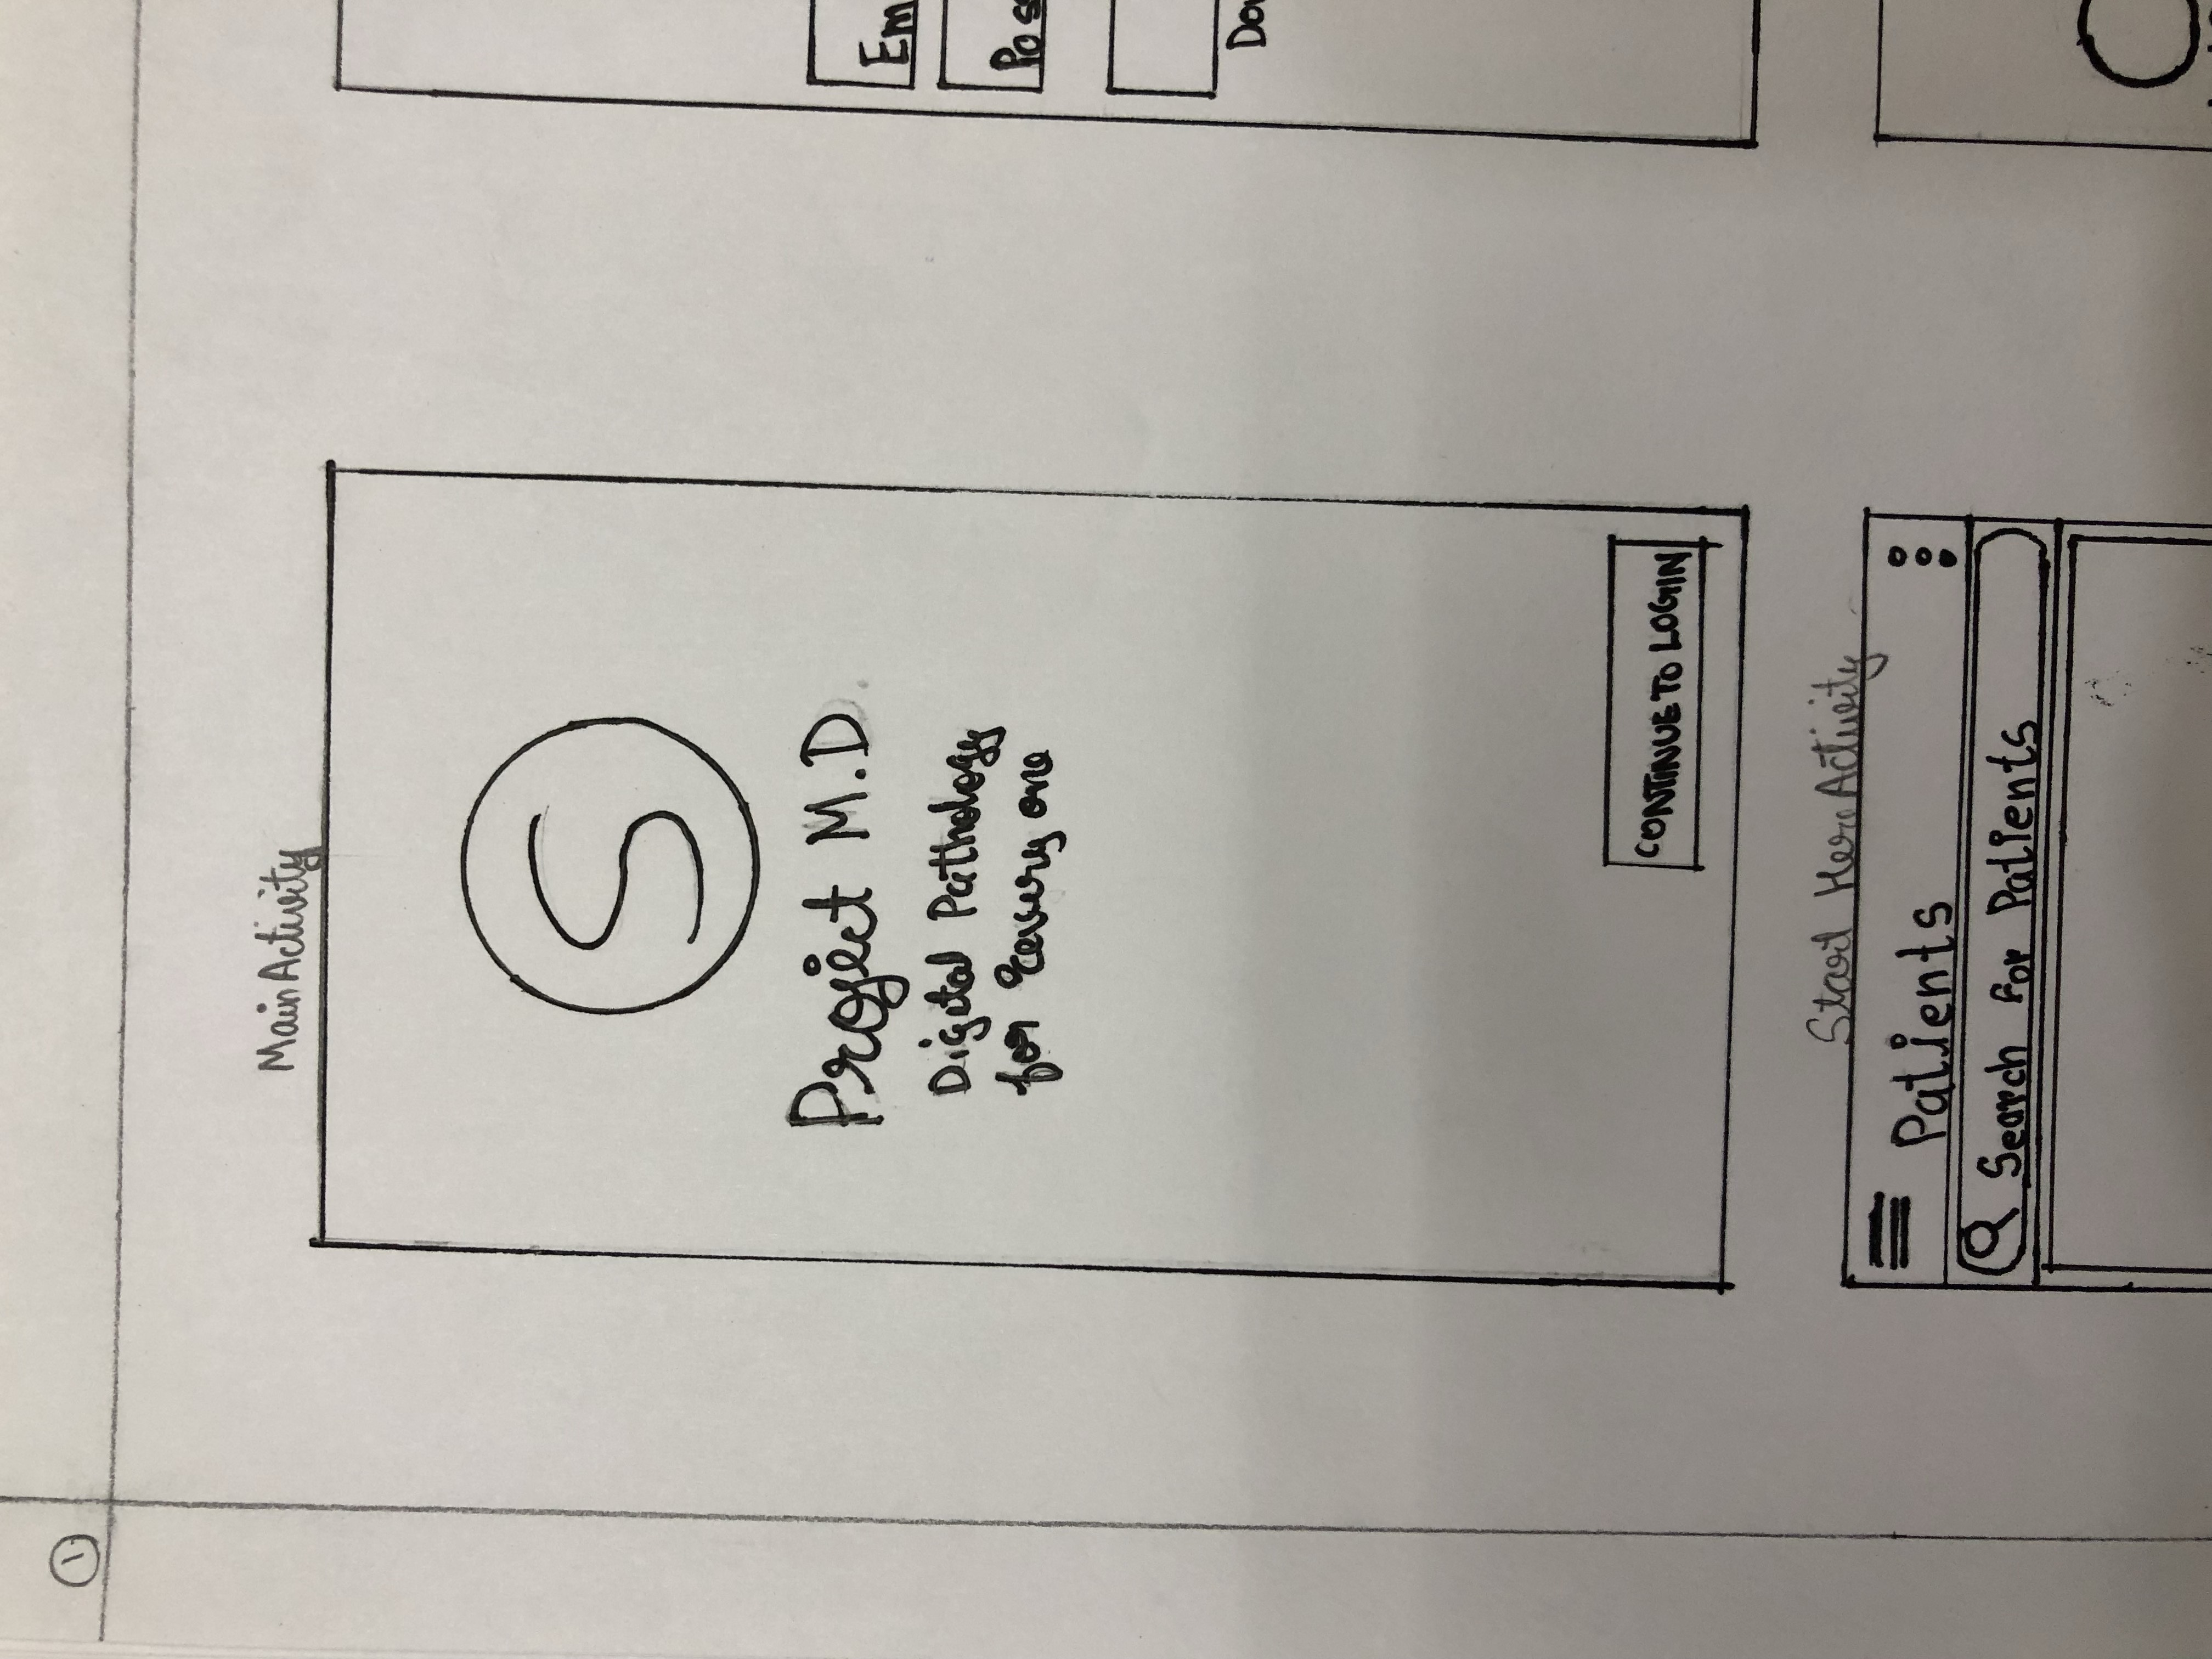 1
MainActivity
S
Project M.D.
Digital Pathology
for Everyone
CONTINUE TO LOGIN
Em
Pass
Don
Start HereActivity
Patients
Search For Patients